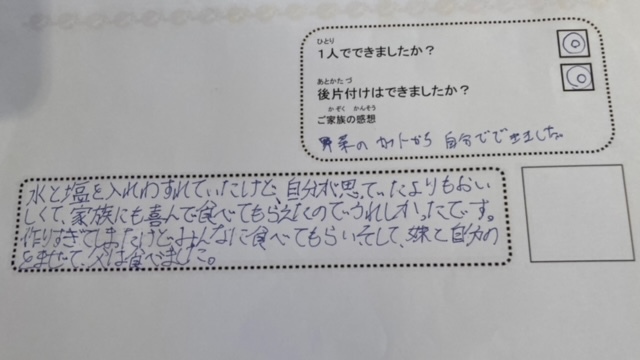 ひとり
1人でできましたか？
◎
あとかたづ
後片付けはできましたか？
◎
かぞく かんそう
ご家族の感想
野菜のカットから自分でできました。
水と塩を入れわすれていたけど、自分が思っていたよりもおい
しくて、家族にも喜んで食べてもらえたのでうれしかったです。
作りすぎてしまったけど、みんなに食べてもらい、そして、妹と自分の
をまぜて、父は食べました。